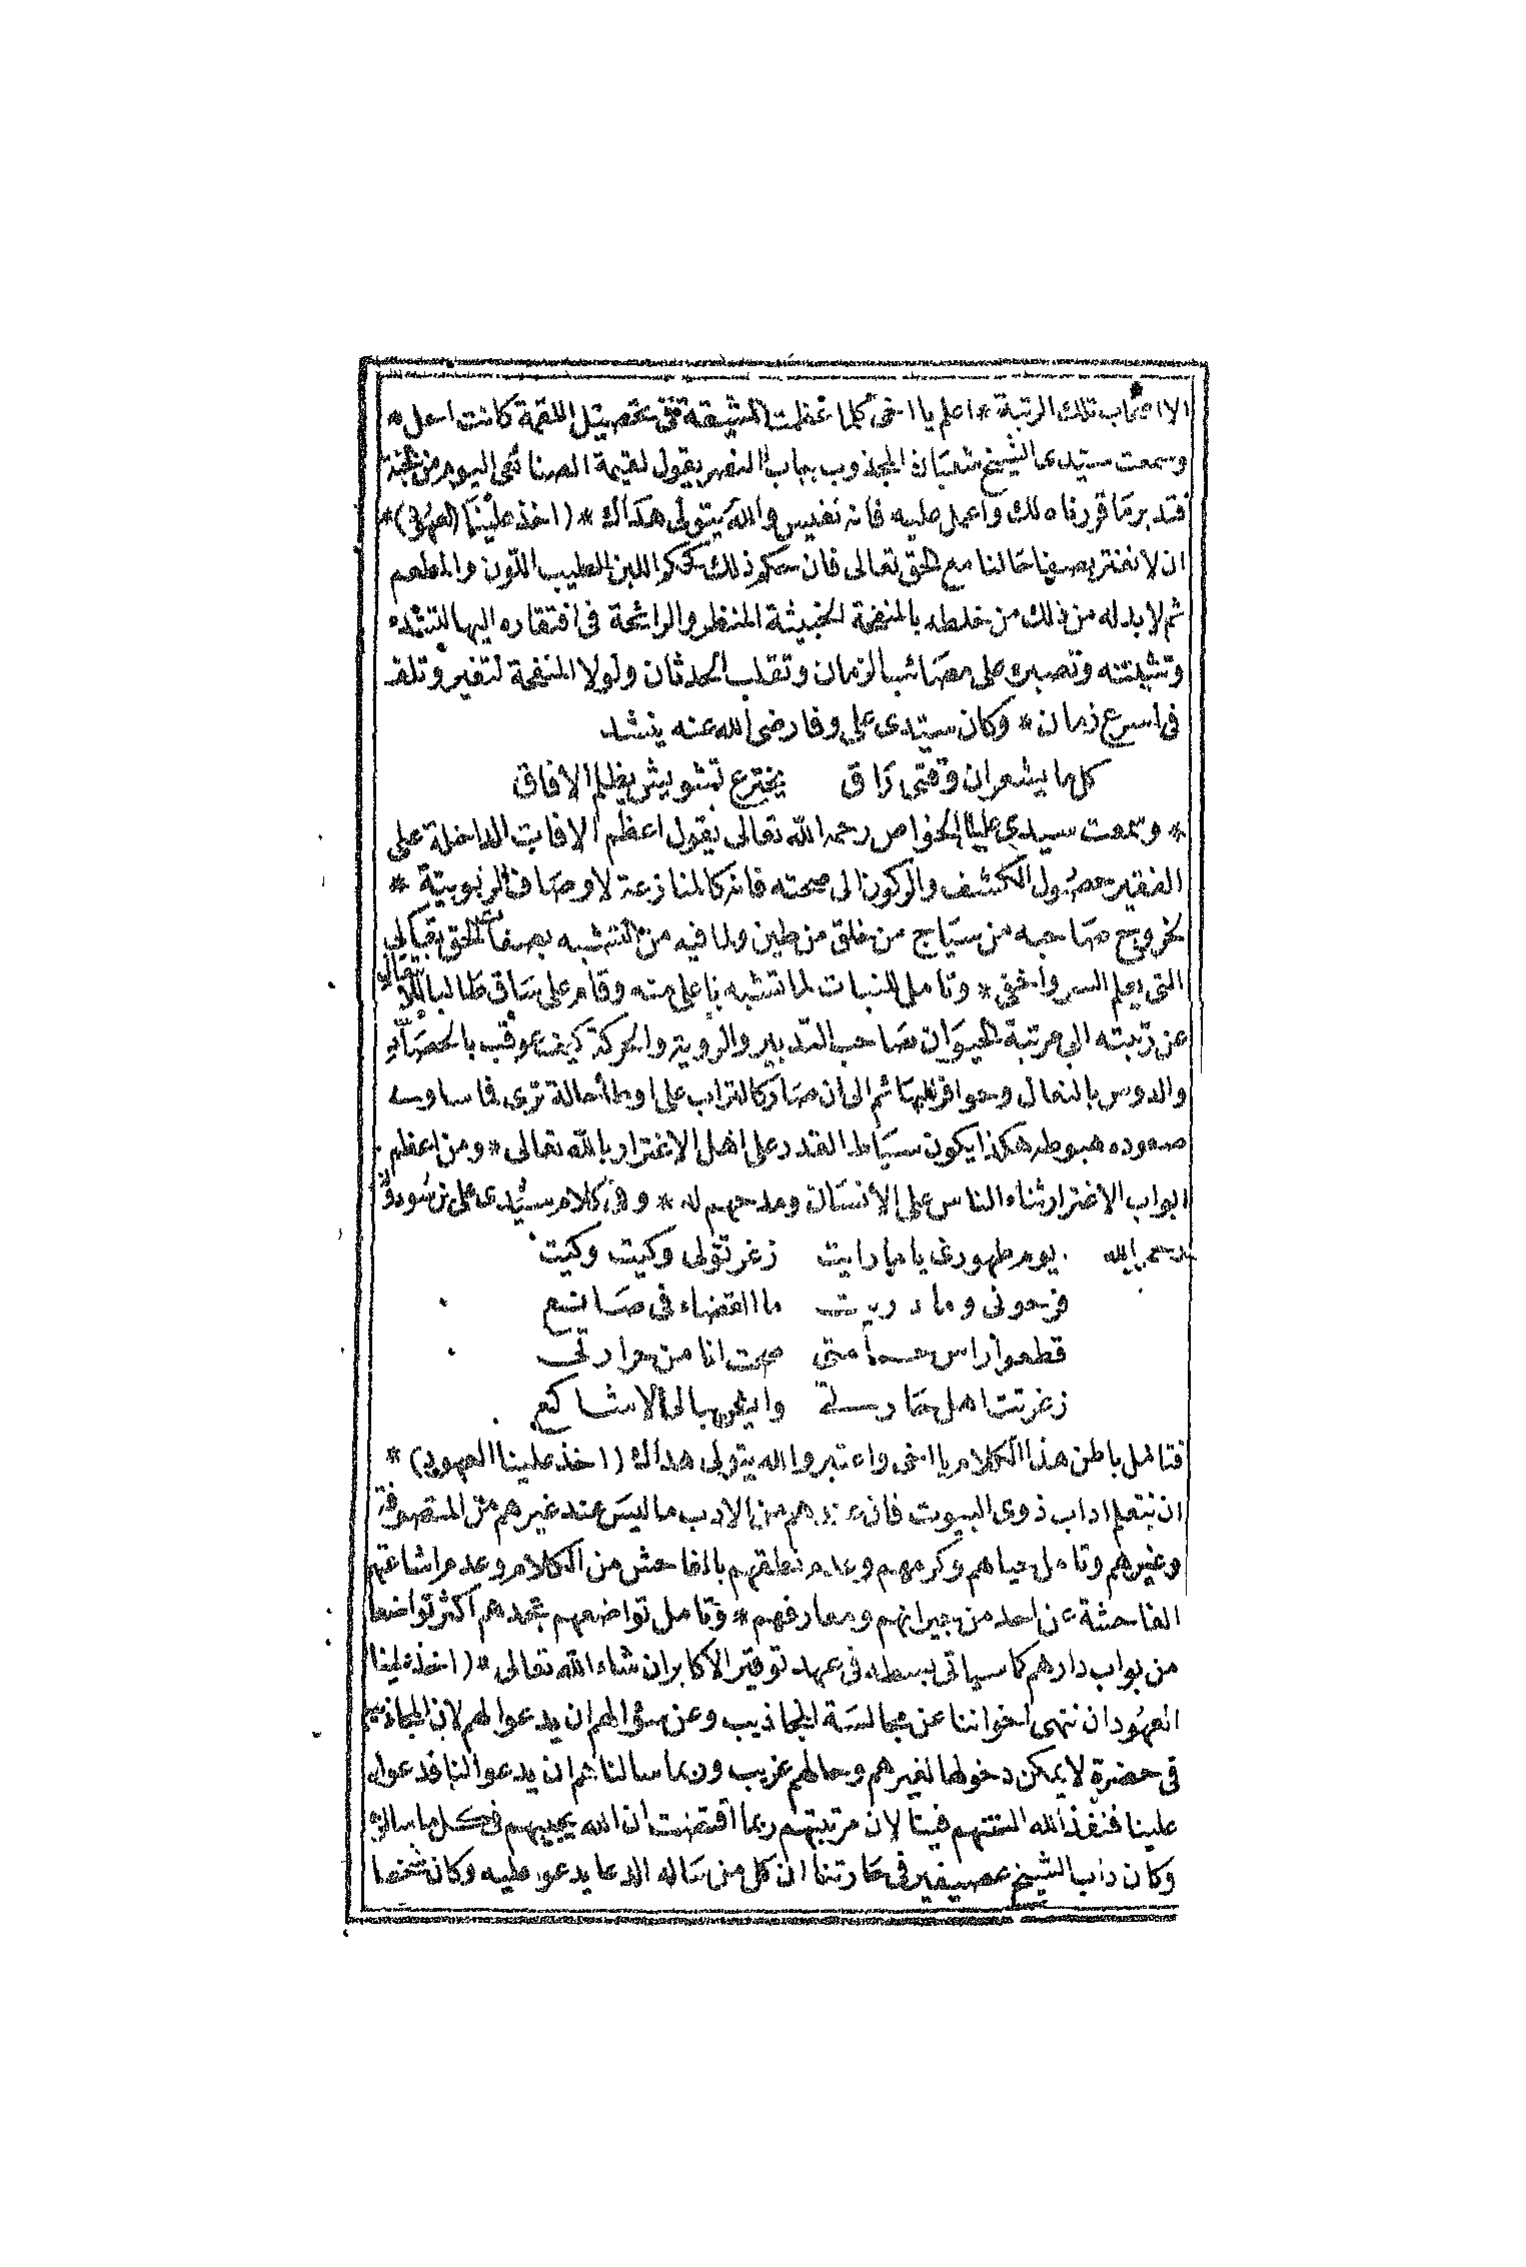 الا اصحاب تلك الرتبة * اعلم يا اخى كلما عظمت المشيقة فى تحصيل اللقمة كانت احل *
وسمعت سيدى الشيخ شعبان المجذوب بباب النصر يقول لقيمة الصنائعى اليوم من الجنة
فتدبر ما قررناه لك واعمل عليه فانه نفيس والله يتولى هداك * (اخذ علينا العهود) *
ان لا نغتر بصفا حالنا مع الحق تعالى فان حكم ذلك كحكم اللبن الطيب اللون والمطعم
ثم لا بد له من ذلك من خلطه بالمنفحة الخبيثة المنظر والرائحة فى افتقاره اليها لتشده
وتثبته وتصبره على مصائب الزمان وتقلب الحدثان ولولا المنفحة لتغير وتلف
فى اسرع زمان * وكان سيدى على وفا رضى الله عنه ينشد
كل ما يشعر ان وقتى راق يخترع تشويش يظلم الافاق
* وسمعت سيدي عليا الخواص رحمه الله تعالى يقول اعظم الافات الداخلة على
الفقير حصول الكشف والركون الى صحته فانه كالمنازعة لاوصاف الربوبية *
لخروج صاحبه من سياج من خلق من طين ولما فيه من التشبه بصفات الحق تعالى
التى يعلم السر واخفى * وتامل النبات لما تشبه باعلى منه وقام على ساق طالبا
عن رتبته الى مرتبة الحيوان صاحب التدبير والروية والحركة كيف عوقب بالحصاد
والدوس بالنعال وحوافر البهائم الى ان صار كالتراب على اوطأ حالة ترى فاساوسه
صعوده هبوطه هكذا يكون سياط القدر على اهل الاغترار بالله تعالى * ومن اعظم
ابواب الاغترار ثناء الناس على الأنسان ومدحهم له * وفى كلام سيدى على بن سودون
رحمه الله يوم طهورى يا ما رايت زغرتولى وكيت وكيت
فرحونى وما دريت ما القضاء فى صانع
قطعوا راس حمامتى صحت انا من حرارتى
زغرتت اهل حارتى وايش يبالى الاشاكع
فتامل باطن هذا الكلام يا اخى واعتبر والله يتولى هداك (اخذ علينا العهود) *
ان نتعلم اداب ذوى البيوت فان عندهم من الادب ما ليس عند غيرهم من المتصوفة
وغيرهم وتامل حياهم وكرمهم وعدم نطقهم بالفاحش من الكلام وعدم اشاعتهم
الفاحشة عن احد من جيرانهم ومعارفهم * وتامل تواضعهم تجدهم اكثر تواضعا
من بواب دارهم كما سياتى بسطه فى عهد توقير الاكابر ان شاء الله تعالى * (اخذ علينا
العهود ان ننهى اخواننا عن مجالسة المجاذيب وعن سؤالهم ان يدعوا لهم لان المجاذيب
فى حضرة لا يمكن دخولها لغيرهم وحالهم غريب وربما سالناهم ان يدعوا لنا فدعوا
علينا فنفذ الله السنتهم فينا لان مرتبتهم ربما اقتضت ان الله يجيبهم فى كل ما سالوه
وكان داب الشيخ عصيفير فى حارتنا ان كل من ساله الدعا يدعو عليه وكان شخصا